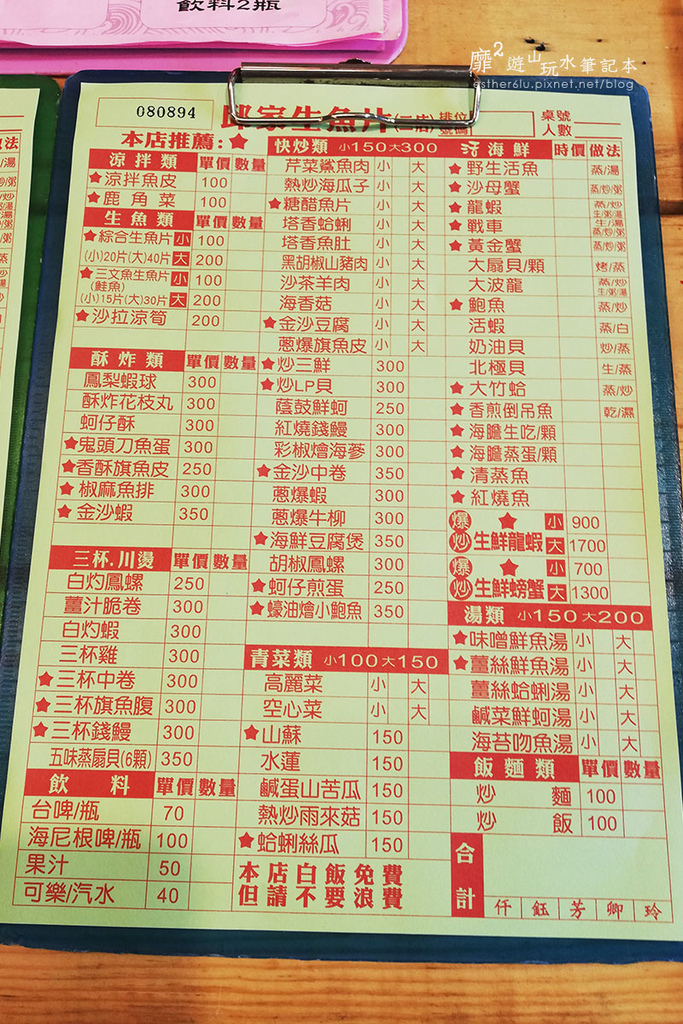 飲料2瓶
靡2遊山玩水筆記本
esther6lu.pixnet.net/blog
080894
邱家生魚片(二店) 排位號碼
桌號
人數
本店推薦:★
涼拌類 單價 數量
★涼拌魚皮 100
★鹿角菜 100
生魚類 單價 數量
★綜合生魚片 小 100
(小)20片(大)40片 大 200
★三文魚生魚片 小 100
(鮭魚)
(小)15片(大)30片 大 200
★沙拉涼筍 200
酥炸類 單價 數量
鳳梨蝦球 300
酥炸花枝丸 300
蚵仔酥 300
★鬼頭刀魚蛋 300
★香酥旗魚皮 250
★椒麻魚排 300
★金沙蝦 350
三杯.川燙 單價 數量
白灼鳳螺 250
薑汁脆卷 300
白灼蝦 300
三杯雞 300
★三杯中卷 300
★三杯旗魚腹 300
★三杯錢鰻 300
五味蒸扇貝(6顆) 350
飲料 單價 數量
台啤/瓶 70
海尼根啤/瓶 100
果汁 50
可樂/汽水 40
快炒類 小150大300
芹菜鯊魚肉 小 大
熱炒海瓜子 小 大
★糖醋魚片 小 大
塔香蛤蜊 小 大
塔香魚肚 小 大
黑胡椒山豬肉 小 大
沙茶羊肉 小 大
海香菇 小 大
★金沙豆腐 小 大
蔥爆旗魚皮 小 大
★炒三鮮 300
★炒LP貝 300
蔭鼓鮮蚵 250
紅燒錢鰻 300
彩椒燴海蔘 300
★金沙中卷 350
蔥爆蝦 300
蔥爆牛柳 300
★海鮮豆腐煲 350
胡椒鳳螺 300
★蚵仔煎蛋 250
★蠔油燴小鮑魚 350
青菜類 小100大150
高麗菜 小 大
空心菜 小 大
★山蘇 150
水蓮 150
鹹蛋山苦瓜 150
熱炒雨來菇 150
★蛤蜊絲瓜 150
本店白飯免費
但請不要浪費
海鮮 時價 做法
★野生活魚 蒸/湯
★沙母蟹 蒸/炒/粥
★龍蝦 蒸/炒 生/粥/湯
★戰車 蒸/炒 生/粥
★黃金蟹 蒸/炒/粥
大扇貝/顆 烤/蒸
大波龍 蒸/炒 生/粥/湯
★鮑魚 蒸/炒
活蝦 蒸/白
奶油貝 炒/蒸
北極貝 生/蒸
★大竹蛤 蒸/炒
★香煎倒吊魚 乾/濕
★海膽生吃/顆
★海膽蒸蛋/顆
★清蒸魚
★紅燒魚
爆炒 ★生鮮龍蝦 小 900
大 1700
爆炒 ★生鮮螃蟹 小 700
大 1300
湯類 小150大200
★味噌鮮魚湯 小 大
★薑絲鮮魚湯 小 大
薑絲蛤蜊湯 小 大
鹹菜鮮蚵湯 小 大
海苔吻魚湯 小 大
飯麵類 單價 數量
炒麵 100
炒飯 100
合計
仟 鈺 芳 卿 玲